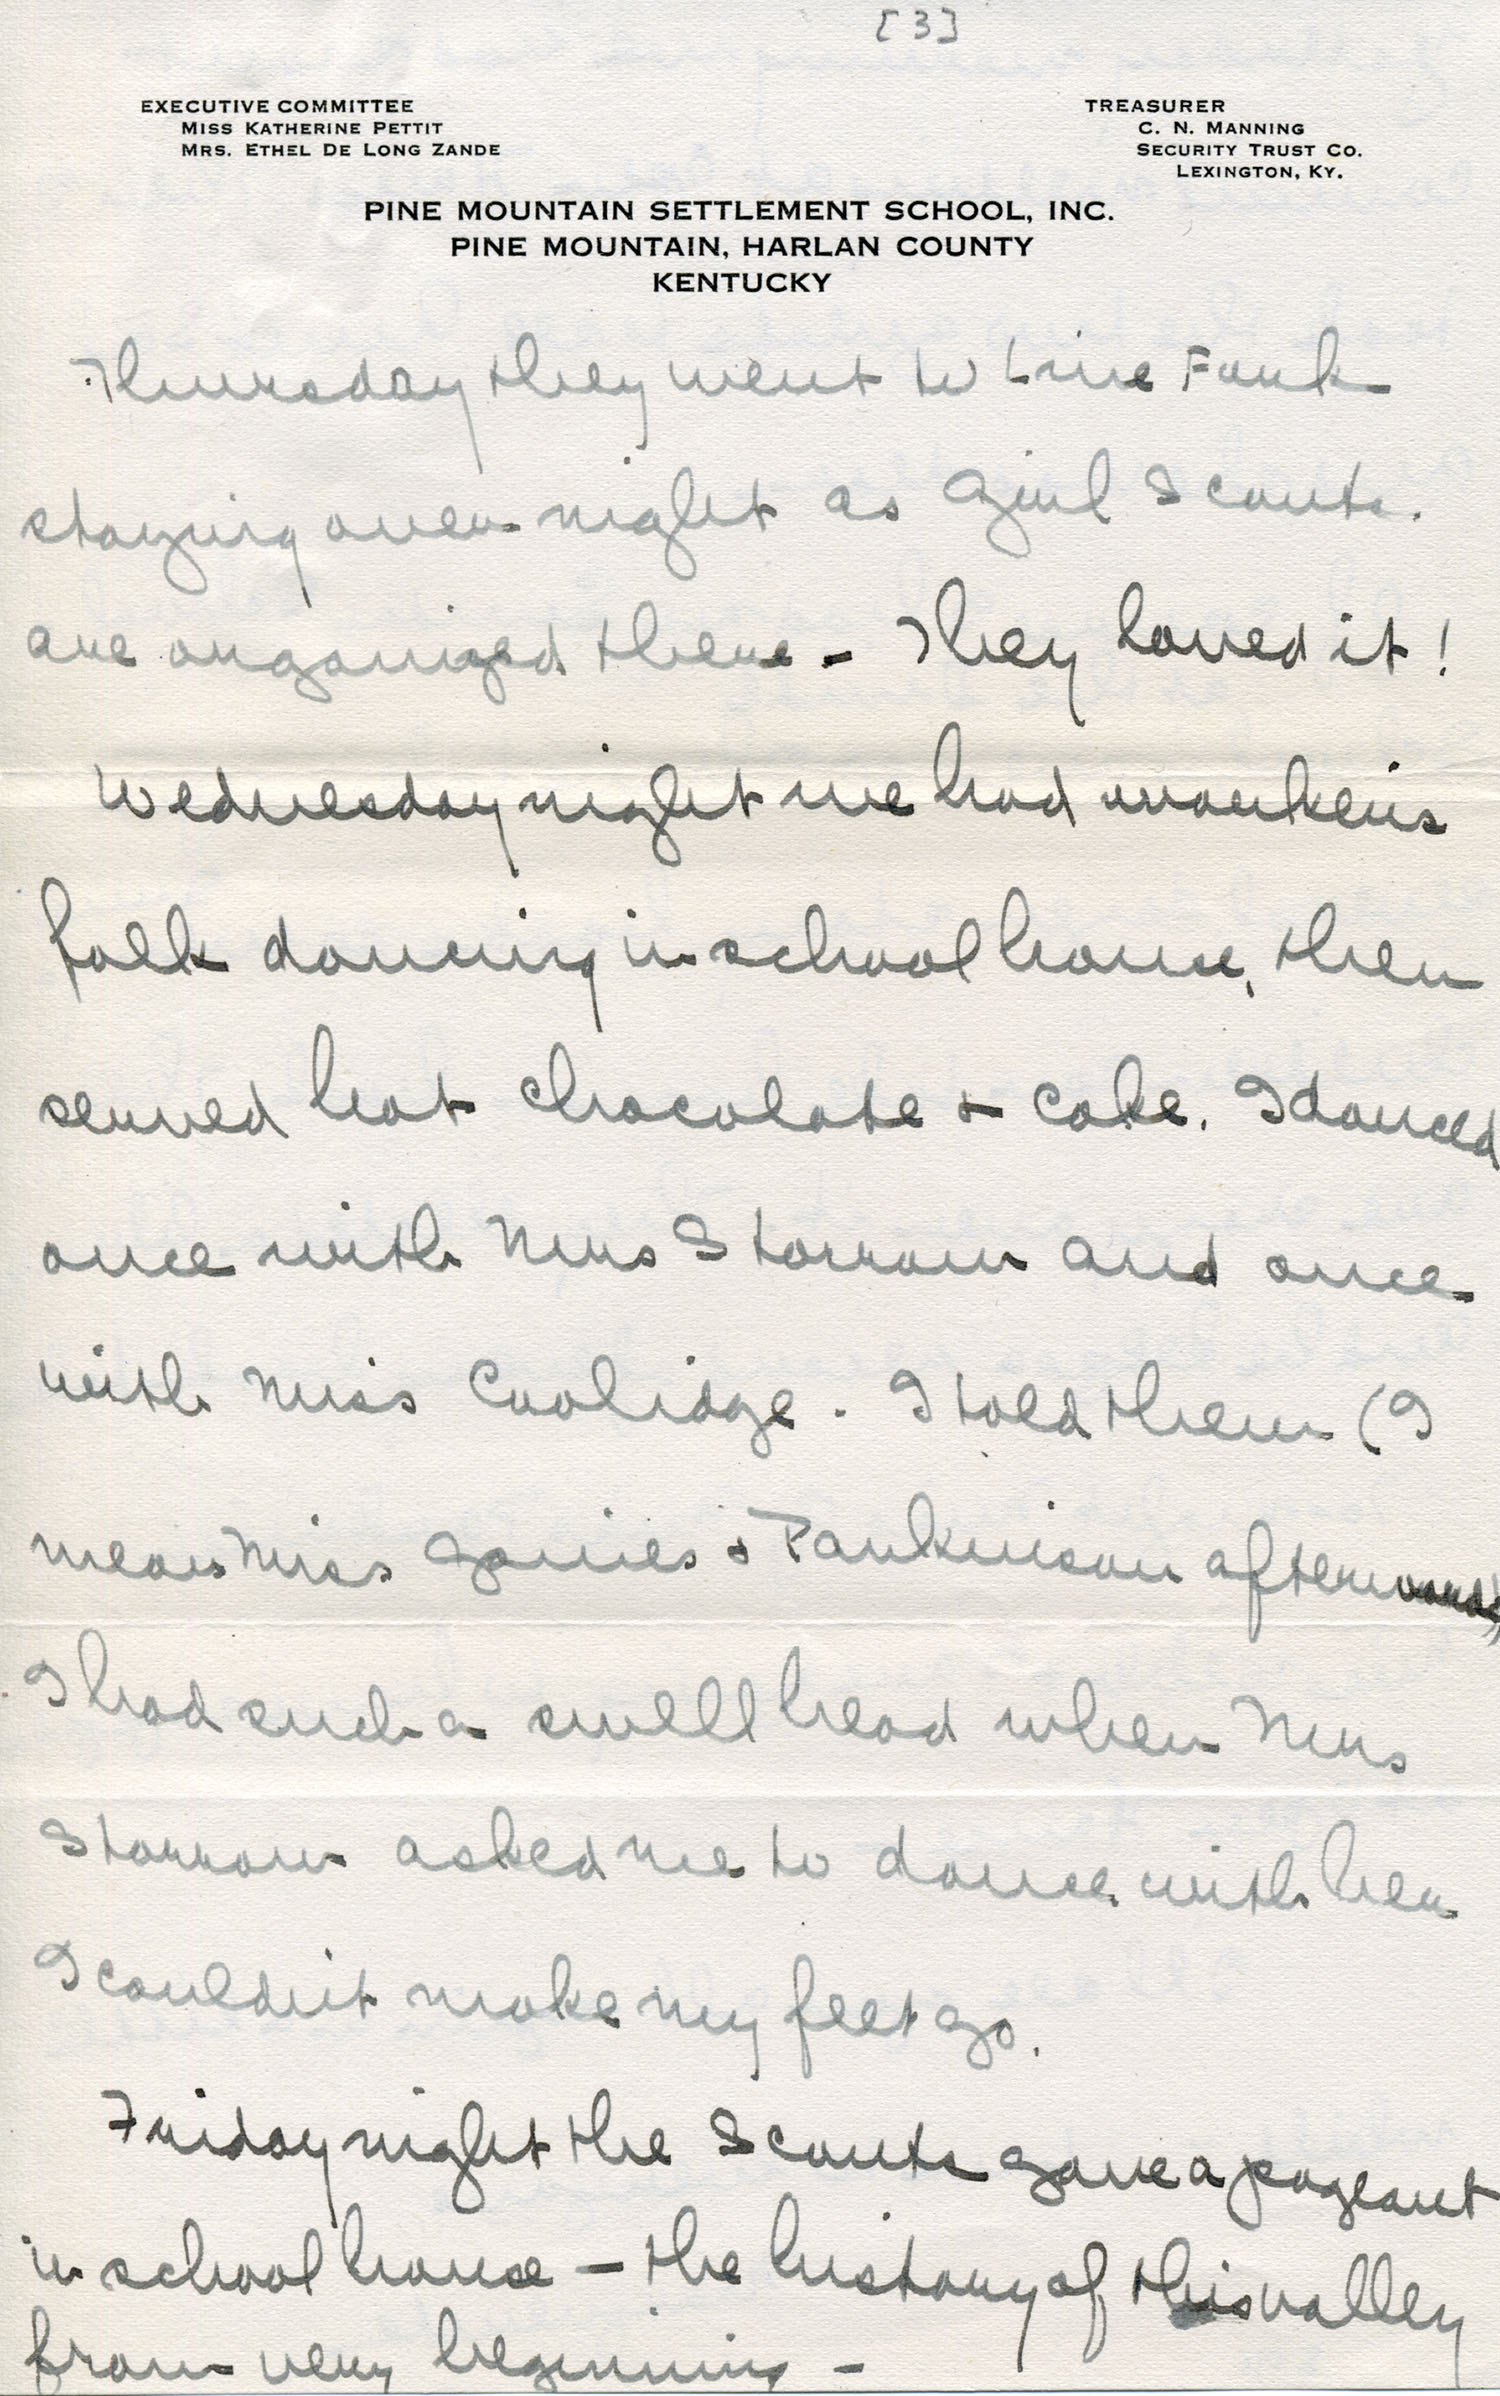 [3]
EXECUTIVE COMMITTEE
MISS KATHERINE PETTIT
MRS. ETHEL DE LONG ZANDE
TREASURER
C. N. MANNING
SECURITY TRUST CO.
LEXINGTON, KY.
PINE MOUNTAIN SETTLEMENT SCHOOL, INC.
PINE MOUNTAIN, HARLAN COUNTY
KENTUCKY
Thursday they went to Line Fork
staying over night as Girl Scouts.
are organized there - They loved it!
Wednesday night we had workers
folk dancing in school house, then
served hot chocolate & cake. I danced
once with Mrs Storrow and once
with Miss Coolidge. I told them (I
mean Miss Gaines & Parkinson afterwards)
I had such a swell head when Mrs
Storrow asked me to dance with her
I couldn't make my feet go.
Friday night the Scouts gave a pageant
in school house - the history of this valley
from very beginning -